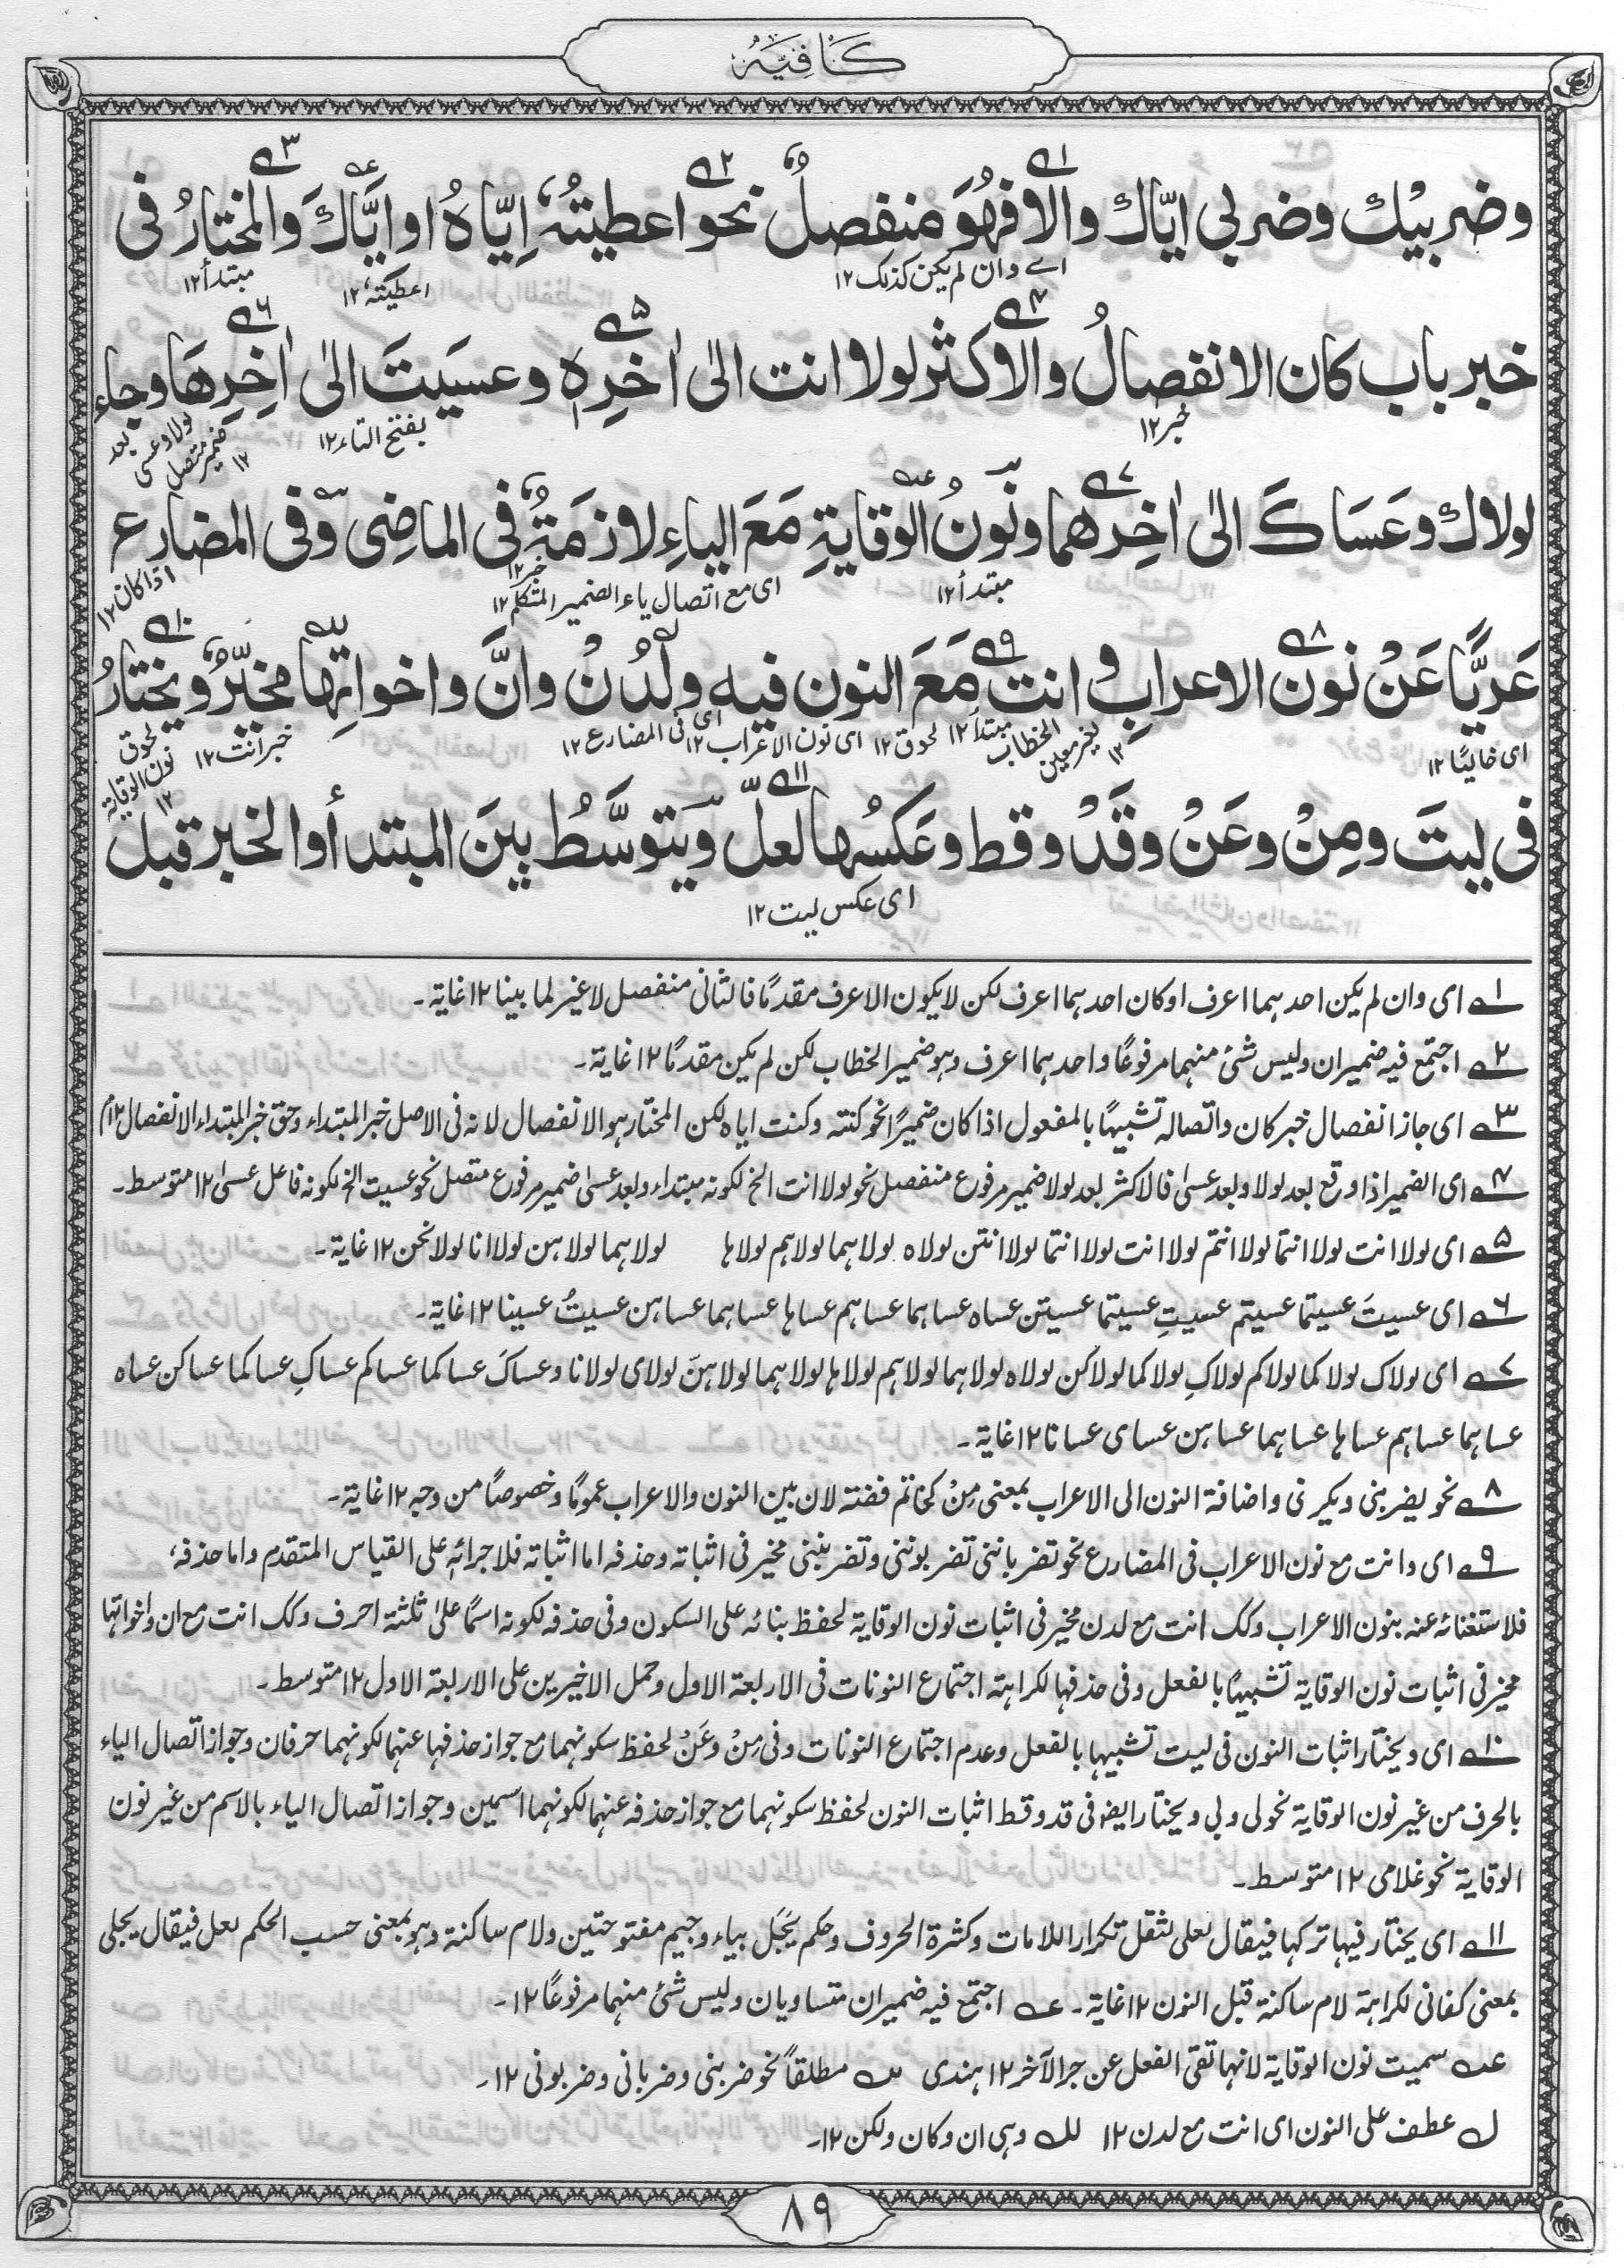 كَافِيَه
وضربيْك وضربي ايّاك والا فهُوَ منفصلٌ نحو اعطيتُهٗ اِيّاهُ او ايَّاكَ والمختارُ فى
اے وان لم يكن كذلك ١٢
اعطيتهٗ ١٢
مبتدأ ١٢
خبر باب كان الانفصالُ والاكثر لولا انت الىٰ اٰخرِهٖ وعسَيتَ الىٰ اٰخِرِهَا وجاء
خبر ١٢
بفتح التاء ١٢
بعد لولا وعسى ضمير متصل ١٢
لولاك وعَسَاكَ الىٰ اٰخِرِهما ونُونُ الوقايةِ مَعَ الياءِ لازمَةٌ فى الماضِى وفى المضارع
مبتدأ ١٢
اى مع اتصال ياء الضمير المتكلم ١٢
خبر ١٢
اذا كان ١٢
عَرِيًّا عَنْ نون الاعرابِ وانت مَعَ النون فيه ولَدُنْ وانَّ واخواتِها مخيّرٌ ويختارُ
اى خاليًا ١٢
مبتدأ ١٢
لحوق ١٢
اى نون الاعراب ١٢
اى فى المضارع ١٢
خبر انت ١٢
لحوق نون الوقاية ١٢
فى ليتَ ومِنْ وعَنْ وقَدْ وقط وعَكسُها لعلّ ويَتوسَّطُ بينَ المبتدأ والخبر قبل
اى عكس ليت ١٢
١ اى وان لم يكن احدهما اعرف او كان احدهما اعرف لكن لا يكون الاعرف مقدمًا فالثانى منفصل لا غير لما بينا ١٢ غاية۔
٢ اجتمع فيه ضميران وليس شئ منهما مرفوعًا واحدهما اعرف وهو ضمير الخطاب لكن لم يكن مقدمًا ١٢ غاية۔
٣ اى جاز انفصال خبر كان واتصاله تشبيهًا بالمفعول اذا كان ضميرًا نحو كنته وكنت اياه لكن المختار هو الانفصال لانه فى الاصل خبر المبتداء وحق خبر المبتداء الانفصال ١٢ م
٤ اى الضمير اذا وقع بعد لولا وبعد عسىٰ فالاكثر بعد لولا ضمير مرفوع منفصل نحو لولا انت الخ لكونه مبتداء وبعد عسىٰ ضمير مرفوع متصل نحو عسيت الخ لكونه فاعل عسىٰ ١٢ متوسط۔
٥ اى لولا انت لولا انتما لولا انتم لولا انت لولا انتما لولا انتن لولاه لولا هما لولا هم لولاها لولا هما لولا هن لولا انا لولا نحن ١٢ غاية۔
٦ اى عسيتَ عسيتما عسيتم عسيتِ عسيتما عسيتن عساه عساهما عساهم عساها عساهما عساهن عسيتُ عسينا ١٢ غاية۔
٧ اى لولاك لولاكما لولاكم لولاكِ لولاكما لولاكن لولاه لولاهما لولاهم لولاها لولاهما لولاهنّ لولاى لولانا وعساكَ عساكما عساكم عساكِ عساكما عساكن عساه
عساهما عساهم عساها عساهما عساهن عساى عسانا ١٢ غاية۔
٨ نحو يضربنى ويكرمنى واضافة النون الى الاعراب بمعنى مِنْ كخاتم فضته لان بين النون والاعراب عمومًا وخصوصًا من وجه ١٢ غاية۔
٩ اى وانت مع نون الاعراب فى المضارع نحو تضرباننى تضربوننى وتضربيننى مخير فى اثباته وحذفه اما اثباته فلاجرائه على القياس المتقدم واما حذفه،
فلاستغنائه عنه بنون الاعراب وكك انت مع لدن مخير فى اثبات نون الوقاية لحفظ بنائه على السكون وفى حذفه لكونه اسمًا علىٰ ثلثة احرف وكك انت مع ان واخواتها
مخير فى اثبات نون الوقاية تشبيهًا بالفعل وفى حذفها لكراهة اجتماع النونات فى الاربعة الاول وحمل الاخيرين على الاربعة الاول ١٢ متوسط۔
١٠ اى ويختار اثبات النون فى ليت تشبيها بالفعل وعدم اجتماع النونات وفى مِنْ وعَنْ لحفظ سكونهما مع جواز حذفها عنهما لكونهما حرفان وجواز اتصال الياء
بالحرف من غير نون الوقاية نحو لى وبى ويختار ايضو فى قد وقط اثبات النون لحفظ سكونهما مع جواز حذفه عنهما لكونهما اسمين وجواز اتصال الياء بالاسم من غير نون
الوقاية نحو غلامى ١٢ متوسط۔
١١ اى يختار فيها تركها فيقال لعلى لثقل تكرار اللامات وكثرة الحروف وحكم يَجَل بياء وجيم مفتوحتين ولام ساكنة وهو بمعنى حسب الحكم لعل فيقال يجلى
بمعنى كفانى لكراهة لام ساكنة قبل النون ١٢ غاية۔ عـه اجتمع فيه ضميران متساويان وليس شئ منهما مرفوعًا ١٢۔
عـه سميت نون الوقاية لانها تقى الفعل عن جر الآخر ١٢ هندى سـه مطلقاً نحو ضربنى وضربانى وضربونى ١٢۔
لـ عطف على النون اى انت مع لدن ١٢ للـه وهى ان وكان ولكن ١٢۔
٨٩